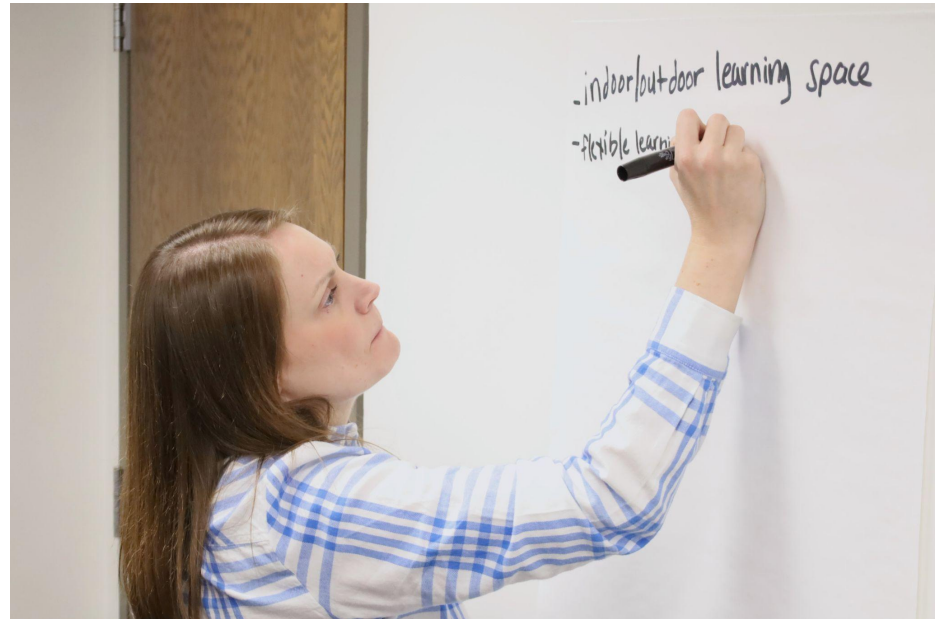 -indoor/outdoor learning space
-flexible learni